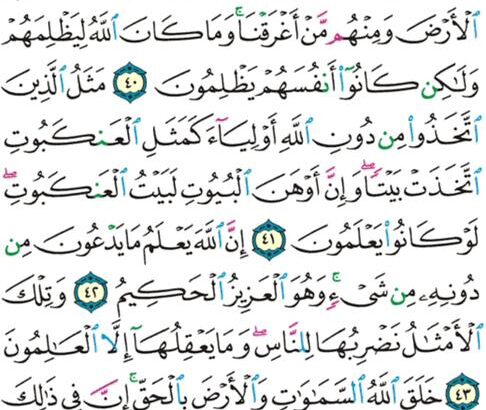 ٱلْأَرْضَ وَمِنْهُم مَّنْ أَغْرَقْنَا ۚ وَمَا كَانَ ٱللَّهُ لِيَظْلِمَهُمْ
وَلَٰكِن كَانُوٓا۟ أَنفُسَهُمْ يَظْلِمُونَ ٤٠ مَثَلُ ٱلَّذِينَ
ٱتَّخَذُوا۟ مِن دُونِ ٱللَّهِ أَوْلِيَآءَ كَمَثَلِ ٱلْعَنكَبُوتِ
ٱتَّخَذَتْ بَيْتًا ۖ وَإِنَّ أَوْهَنَ ٱلْبُيُوتِ لَبَيْتُ ٱلْعَنكَبُوتِ ۖ
لَوْ كَانُوا۟ يَعْلَمُونَ ٤١ إِنَّ ٱللَّهَ يَعْلَمُ مَا يَدْعُونَ مِن
دُونِهِۦ مِن شَىْءٍ ۚ وَهُوَ ٱلْعَزِيزُ ٱلْحَكِيمُ ٤٢ وَتِلْكَ
ٱلْأَمْثَٰلُ نَضْرِبُهَا لِلنَّاسِ ۖ وَمَا يَعْقِلُهَآ إِلَّا ٱلْعَٰلِمُونَ
٤٣ خَلَقَ ٱللَّهُ ٱلسَّمَٰوَٰتِ وَٱلْأَرْضَ بِٱلْحَقِّ ۚ إِنَّ فِى ذَٰلِكَ